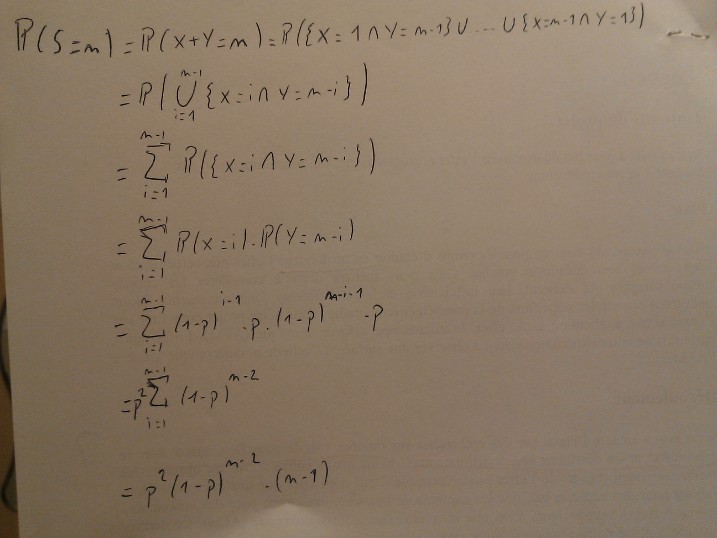 ℙ(S=n) = ℙ(X+Y=n) = ℙ({X=1∩Y=n-1}∪ ... ∪{X=n-1∩Y=1})
= ℙ(⋃_{i=1}^{n-1} {X=i∩Y=n-i})
= ∑_{i=1}^{n-1} ℙ({X=i∩Y=n-i})
= ∑_{i=1}^{n-1} ℙ(X=i)·ℙ(Y=n-i)
= ∑_{i=1}^{n-1} (1-p)^{i-1}·p·(1-p)^{n-i-1}·p
= p²∑_{i=1}^{n-1} (1-p)^{n-2}
= p²(1-p)^{n-2}·(n-1)